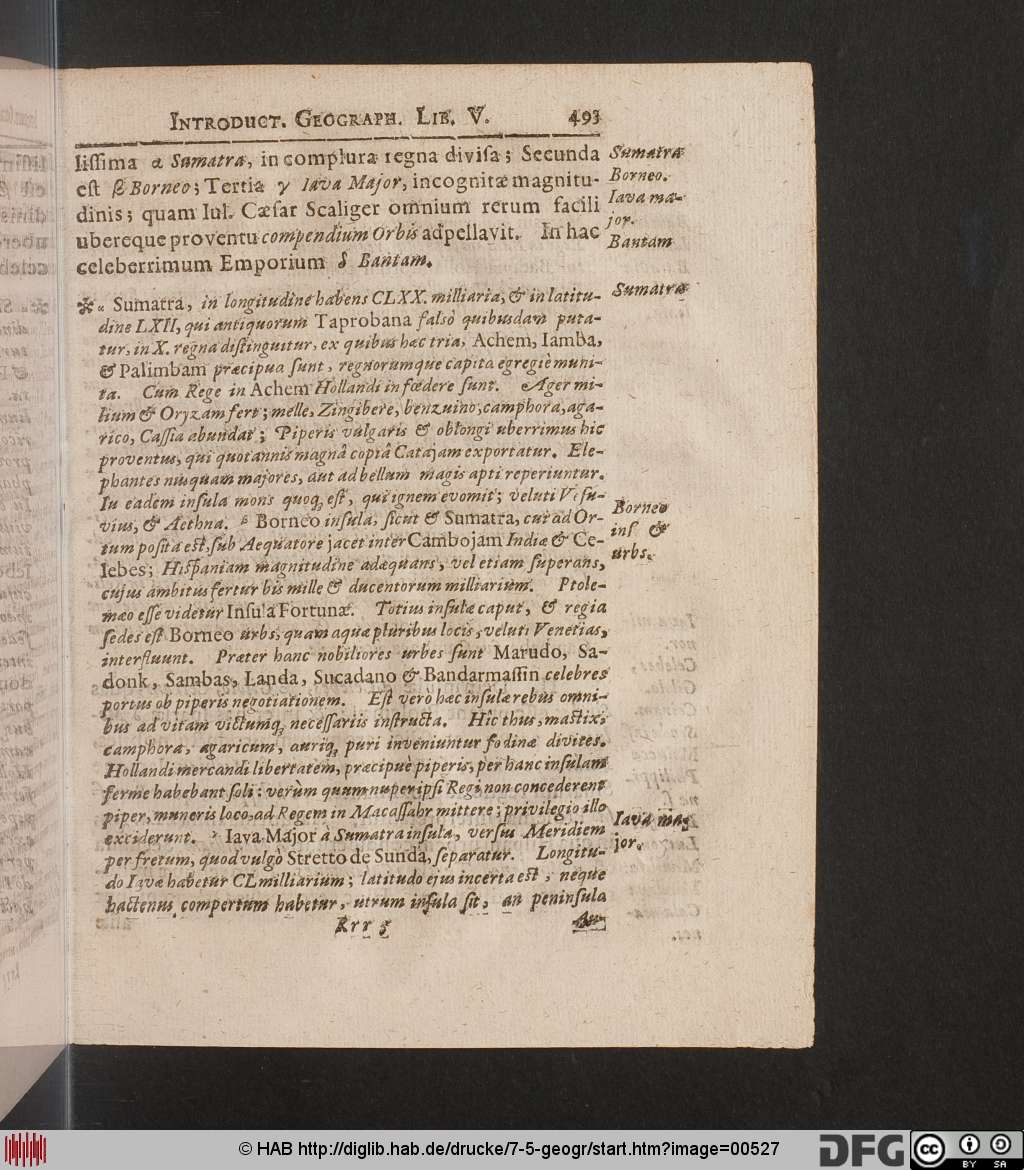 INTRODUCT. GEOGRAPH. LIB. V. 493
lissima α Sumatra, in complura regna divisa; Secunda
est β Borneo; Tertia γ Iava Major, incognitæ magnitu-
dinis; quam Iul. Cæsar Scaliger omnium rerum facili
ubereque proventu compendium Orbis adpellavit. In hac
celeberrimum Emporium δ Bantam.
Sumatra
Borneo.
Iava ma-
jor.
Bantam
✻ α Sumatra, in longitudine habens CLXX. milliaria, & in latitu-
dine LXII, qui antiquorum Taprobana falsò quibusdam puta-
tur, in X. regna distinguitur, ex quibus hæc tria, Achem, Iamba,
& Palimbam præcipua sunt, regnorumque capita egregiè muni-
ta. Cum Rege in Achem Hollandi in fœdere sunt. Ager mi-
lium & Oryzam fert; melle, Zingibere, benzuino, camphora, aga-
rico, Cassia abundat; Piperis vulgaris & oblongi uberrimus hic
proventus, qui quotannis magnâ copiâ Catajam exportatur. Ele-
phantes nusquam majores, aut ad bellum magis apti reperiuntur.
In eadem insula mons quoq; est, qui ignem evomit; veluti Vesu-
vius, & Aethna. β Borneo insula, sicut & Sumatra, cur ad Or-
tum posita est, sub Aequatore jacet inter Cambojam Indiæ & Ce-
lebes; Hispaniam magnitudine adæquans, vel etiam superans,
cujus ambitus fertur bis mille & ducentorum milliarium. Ptole-
mæo esse videtur Insula Fortunæ. Totius insulæ caput, & regia
sedes est Borneo urbs, quam aquæ pluribus locis, veluti Venetias,
interfluunt. Præter hanc nobiliores urbes sunt Marudo, Sa-
donk, Sambas, Landa, Sucadano & Bandarmassin celebres
portus ob piperis negotiationem. Est verò hæc insula rebus omni-
bus ad vitam victumq; necessariis instructa. Hic thus, mastix,
camphora, agaricum, auriq; puri inveniuntur fodinæ divites.
Hollandi mercandi libertatem, præcipuè piperis, per hanc insulam
ferme habebant soli: verùm quum nuper ipsi Regi non concederent
piper, muneris locô, ad Regem in Macassahr mittere; privilegio illo
exciderunt. γ Iava Major à Sumatra insula, versus Meridiem
per fretum, quod vulgò Stretto de Sunda, separatur. Longitu-
do Iavæ habetur CL milliarium; latitudo ejus incerta est, neque
hactenus compertum habetur, utrum insula sit, an peninsula
Sumatra
Borneo
ins. &
urbs.
Iava ma-
jor.
Rrr 5
Au-
© HAB http://diglib.hab.de/drucke/7-5-geogr/start.htm?image=00527
DFG
cc
BY SA